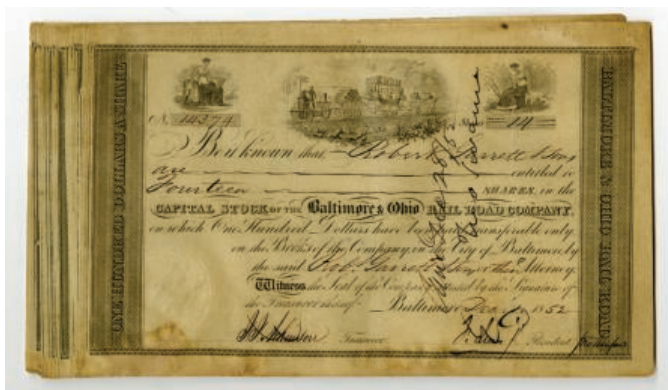 ONE HUNDRED DOLLARS A SHARE
No. 14374
14
Be it known that Robert Garrett & Sons
are entitled to
Fourteen SHARES, in the
CAPITAL STOCK OF THE Baltimore & Ohio RAIL ROAD COMPANY,
on which One Hundred Dollars have been paid transferable only
on the Books of the Company in the City of Baltimore by
the said Robt. Garrett & Sons or their Attorney.
Witness the Seal of the Company attested by the Signature of
the Treasurer
Baltimore Dec 1852
Treasurer
President
BALTIMORE & OHIO RAIL ROAD